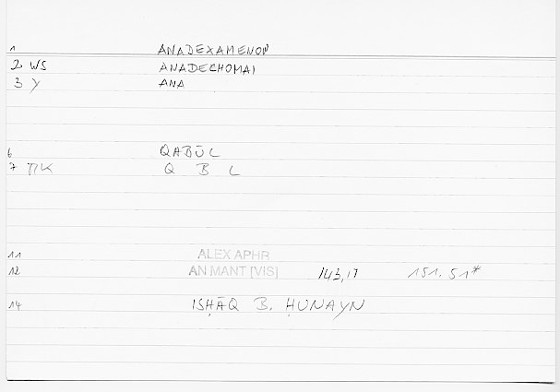 1 ANADEXAMENON
2 WS ANADECHOMAI
3 Y ANA
6 QABŪL
7 TIK Q B L
11 ALEX APHR
12 AN MANT [VIS] 143,17 151.51*
14 ISḤĀQ B. ḤUNAYN